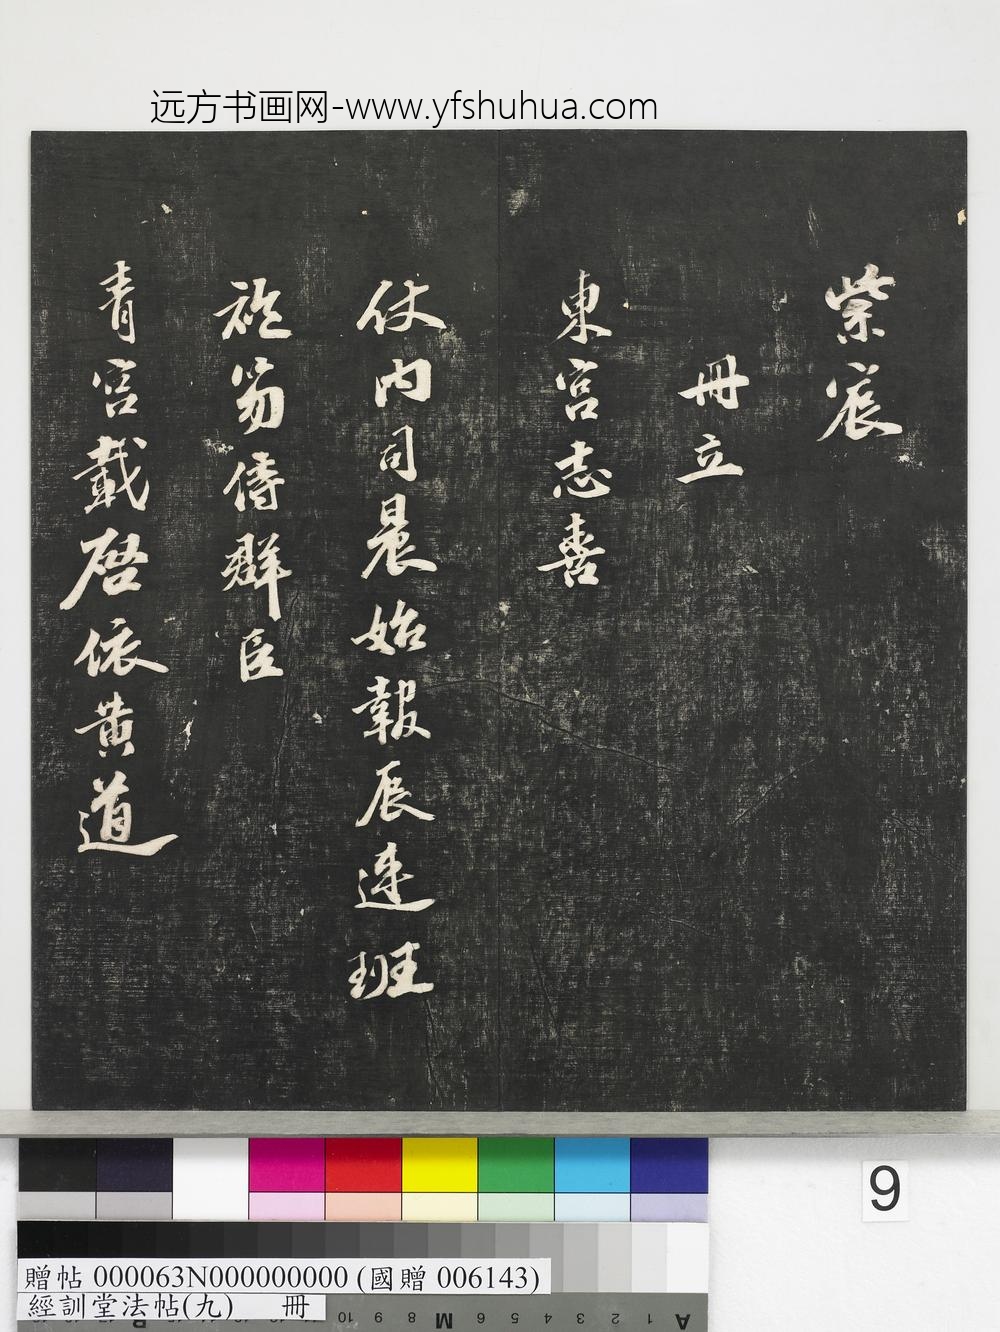 远方书画网-www.yfshuhua.com
紫宸
冊立
東宮志喜
仗内司晨始報辰連班
袍笏侍群臣
青宮載啓依黄道
9
贈帖 000063N000000000 (國贈 006143)
經訓堂法帖(九) 冊